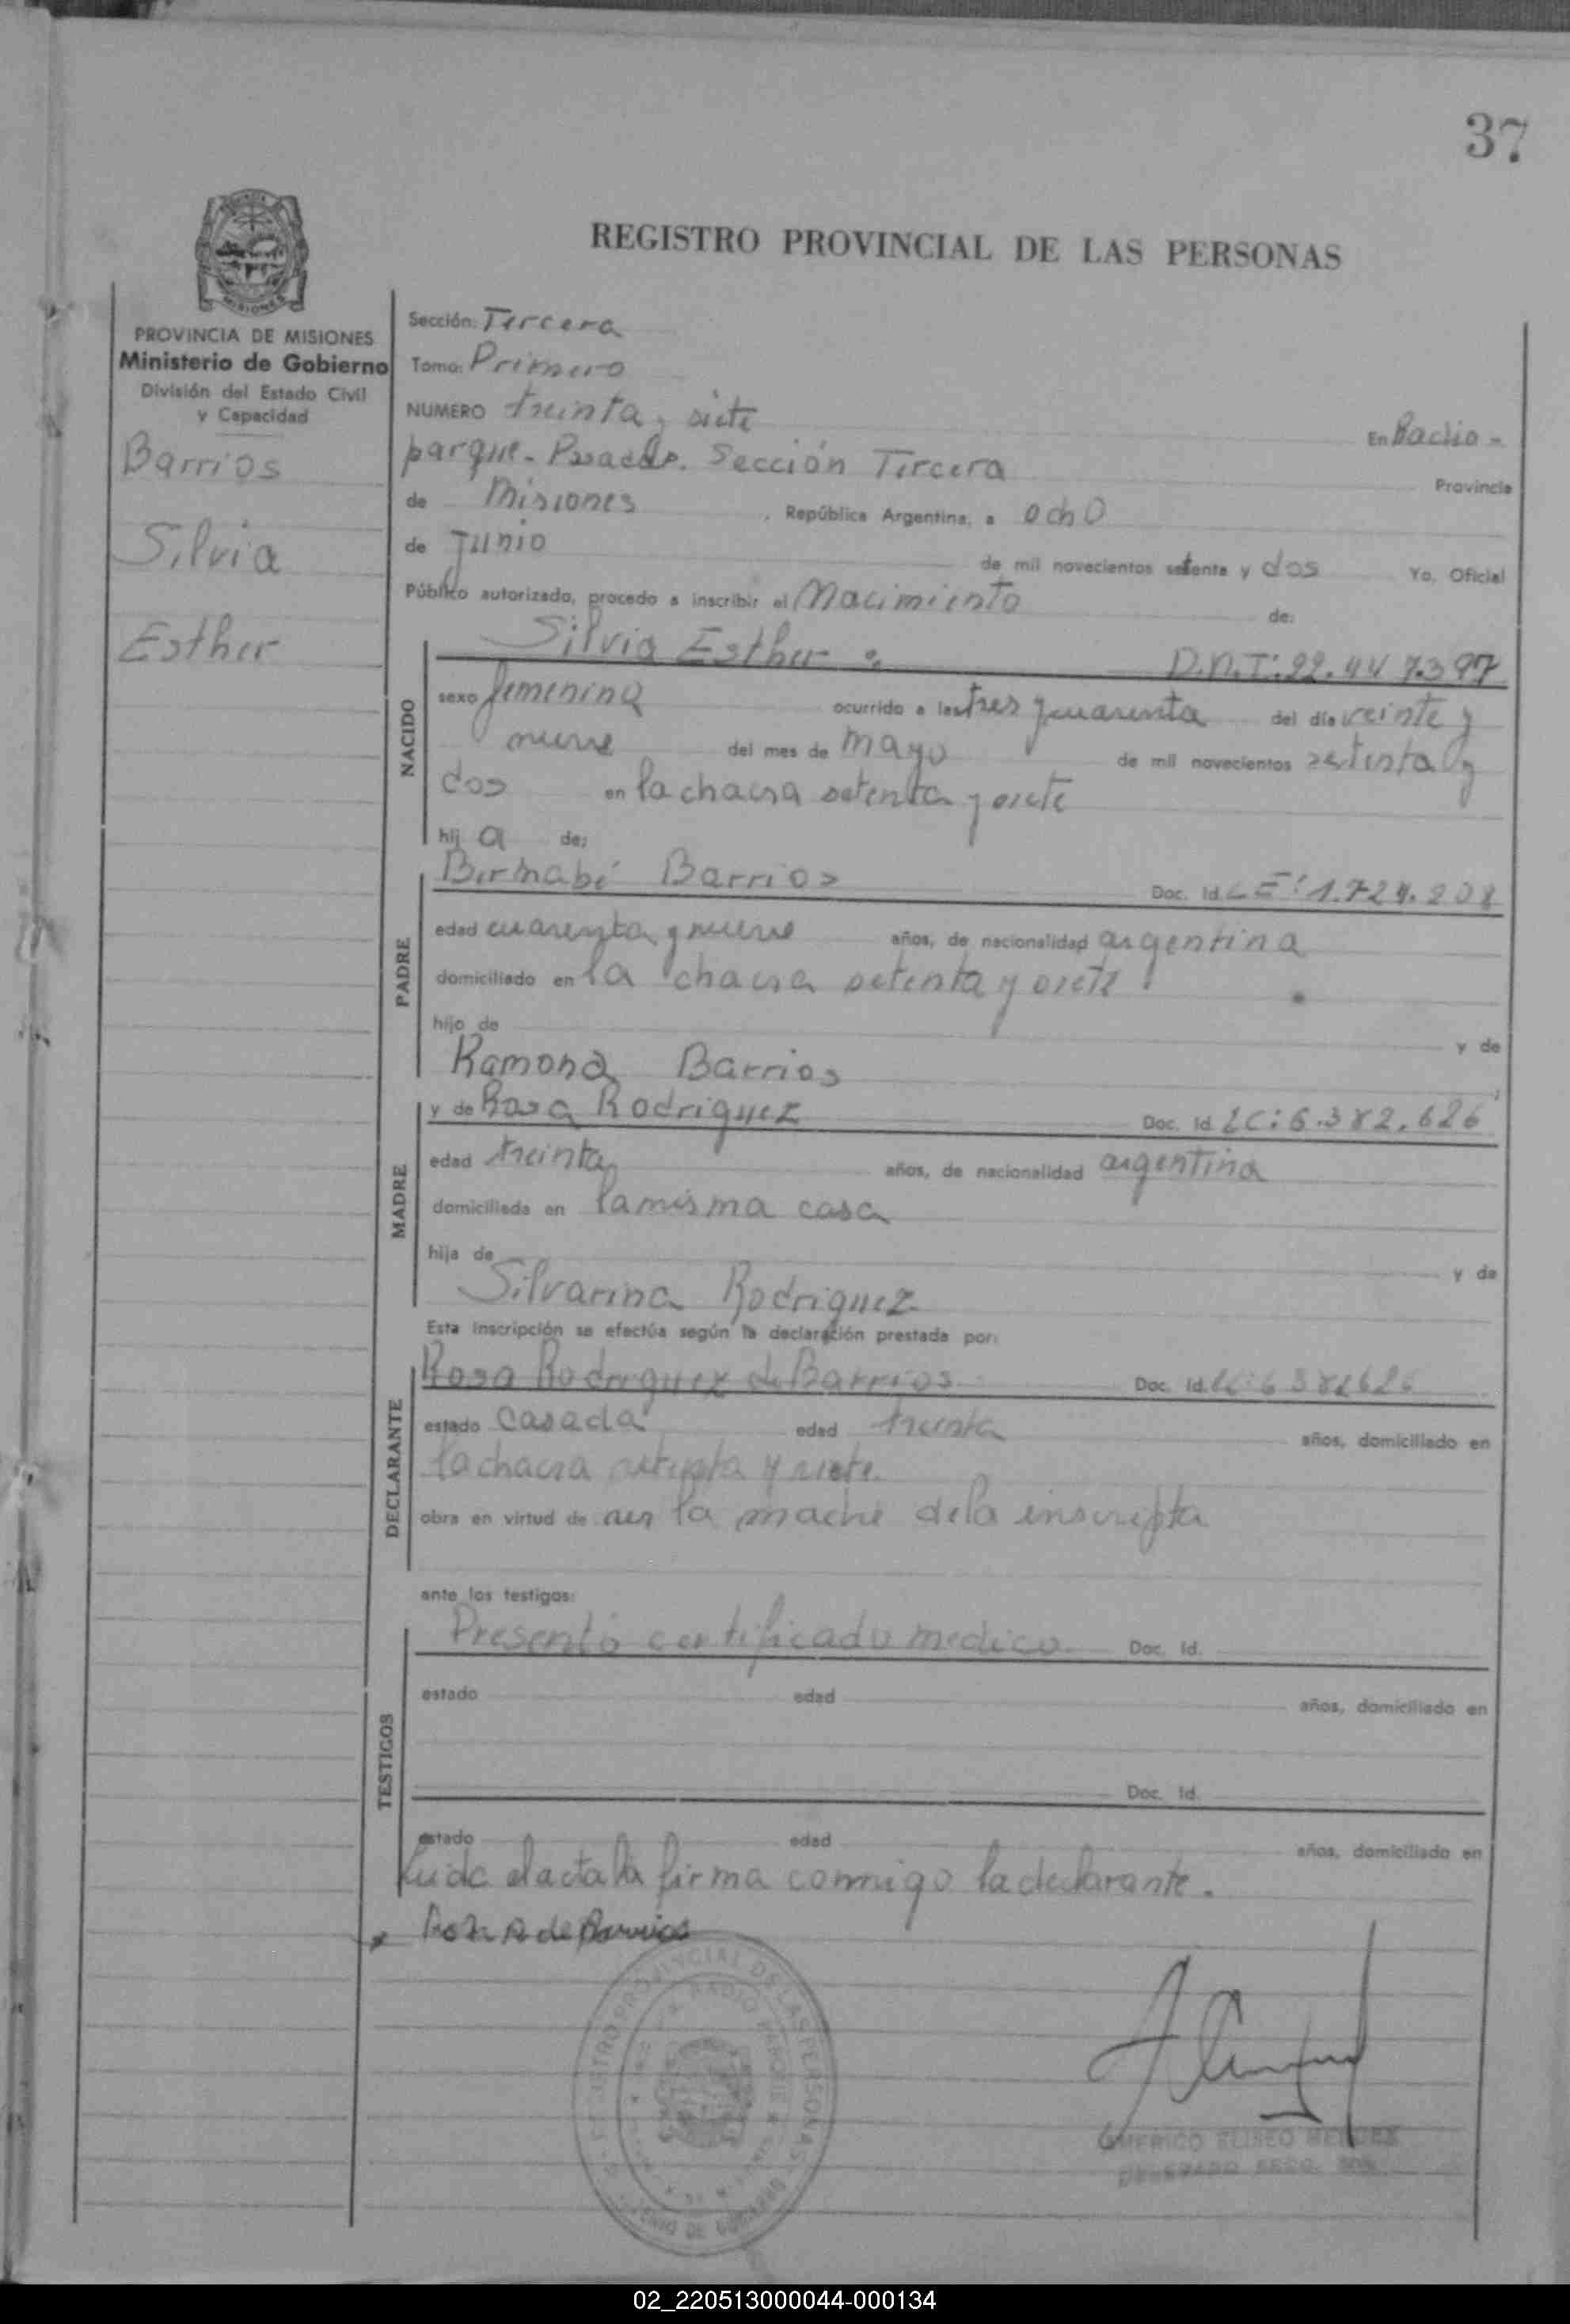 37
REGISTRO PROVINCIAL DE LAS PERSONAS
MISIONES
PROVINCIA DE MISIONES
Ministerio de Gobierno
División del Estado Civil
y Capacidad
Barrios
Silvia
Esther
Sección: Tercera
Tomo: Primero
NUMERO treinta y siete En Radio-
parque- Posadas. Sección Tercera Provincia
de Misiones, República Argentina, a ocho
de Junio de mil novecientos setenta y dos Yo, Oficial
Público autorizado, procedo a inscribir el Nacimiento de:
NACIDO
Silvia Esther D.N.I:22.447.397
sexo femenina ocurrido a las tres y cuarenta del día veinte y
nueve del mes de mayo de mil novecientos setenta y
dos en la chacra setenta y siete
hij a de;
PADRE
Bernabé Barrios Doc. Id. LE: 1.724.208
edad cuarenta y nueve años, de nacionalidad argentina
domiciliado en la chacra setenta y siete
hijo de y de
Ramona Barrios
MADRE
y de Rosa Rodriguez Doc. Id. LC: 6.382.626
edad treinta años, de nacionalidad argentina
domiciliada en la misma casa
hija de y de
Silvarina Rodriguez
Esta inscripción se efectúa según la declaración prestada por:
DECLARANTE
Rosa Rodriguez de Barrios Doc. Id. LC:6382626
estado casada edad treinta años, domiciliado en
la chacra setenta y siete.
obra en virtud de ser la madre de la inscripta
ante los testigos:
TESTIGOS
Presentó certificado medico Doc. Id.
estado edad años, domiciliado en
Doc. Id.
estado edad años, domiciliado en
Leida el acta la firma conmigo la declarante.
Rosa R de Barrios
REGISTRO PROVINCIAL DE LAS PERSONAS
RADIO PARQUE
MINISTERIO DE GOBIERNO
AMERICO ELISEO
DELEGADO SECC.
02_220513000044-000134